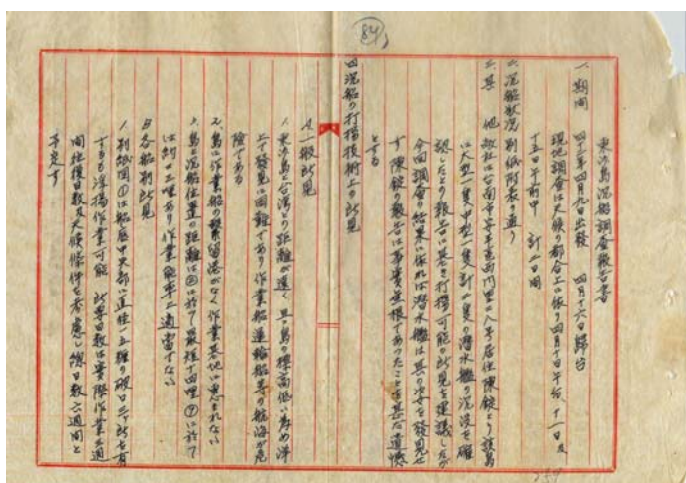 84
東沙島沉船調査報告書
一、期間 四十三年四月九日出發 四月十六日歸台
現地調査は天候の都合上に依り四月十日午后、十一日及
十五日午前中 計二日間
二、沉船狀況 別紙附表の通り
三、其 他 敝社は台南市 居住陳錠より該島
に大型一隻中型一隻計二隻の潜水艦の沉没を確
認したとの報告に基き打撈可能の所見を建議したが
今回調査の結果に依れば潜水艦は其の姿を發見せ
ず陳錠の報告は事實無根であつたことを甚だ遺憾
とする
四、沉船の打撈技術上の所見
A、一般所見
1、東沙島は台湾との距離が遠く且つ島の標高低い為め洋
上で發見に困難であり作業船運輸船等の航海が危
險である
2、島に作業船の繫留港がなく作業基地に惠まれない
3、島と沉船位置の距離は に於て最短十四哩 に於て
は約 哩あり作業能率に適當でない
B、各船別所見
1、別紙圖①は船 中央部に直徑一五 の破口三ヶ所を有
するも浮揚作業可能 所要日數は實際作業三週
間往復日數及天候條件を考慮し總日數六週間と
予定す